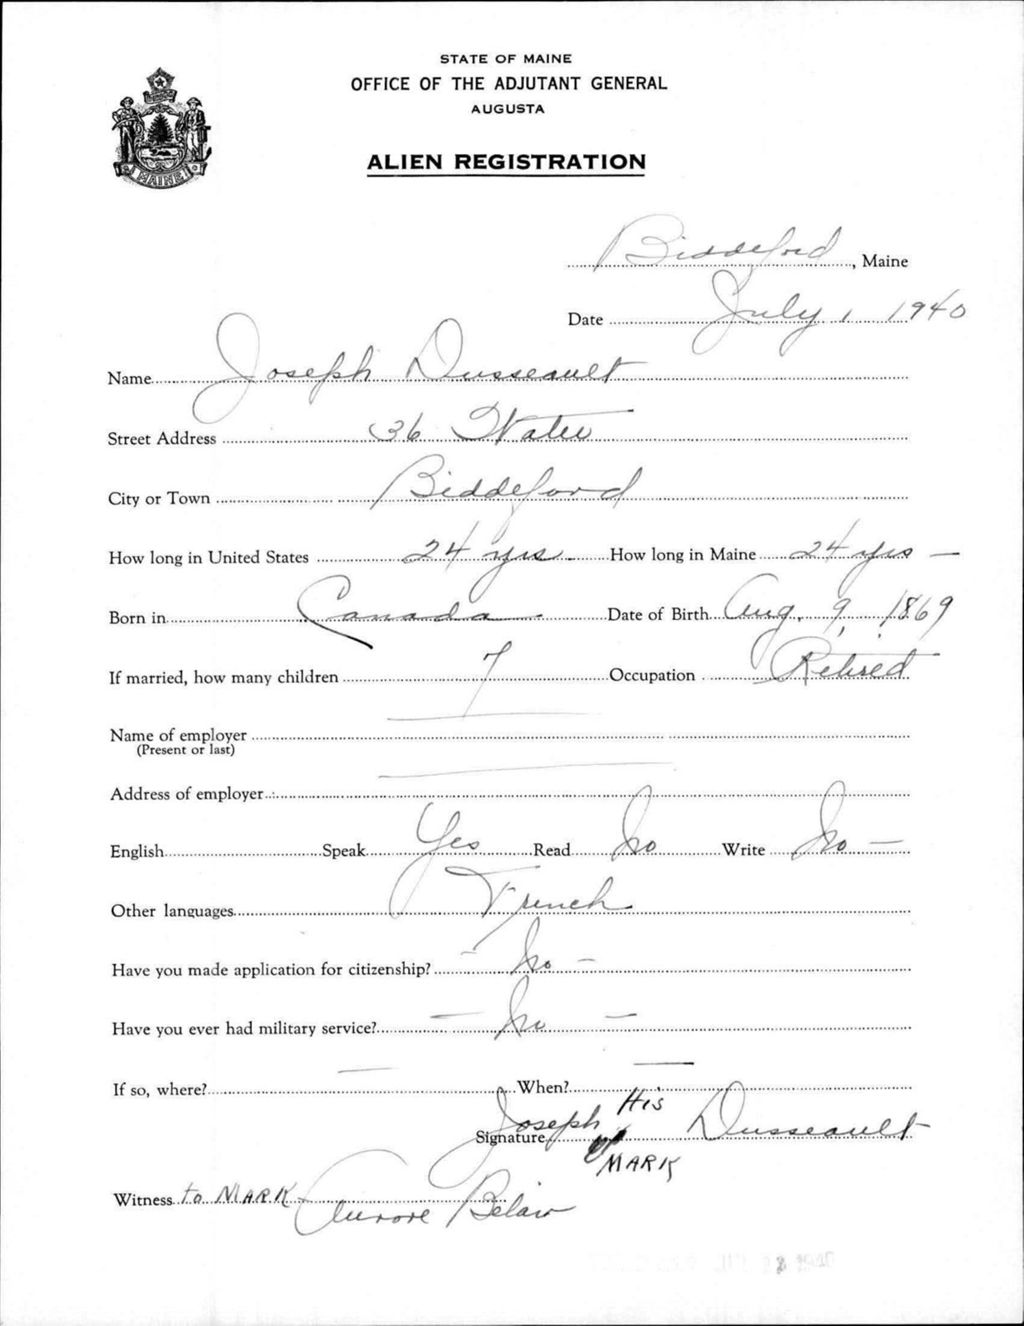 STATE OF MAINE
OFFICE OF THE ADJUTANT GENERAL
AUGUSTA
MAINE
ALIEN REGISTRATION
Biddeford, Maine
Date July 1, 1940
Name Joseph Dusseault
Street Address 36 Water
City or Town Biddeford
How long in United States 24 yrs - How long in Maine 24 yrs -
Born in Canada Date of Birth Aug. 9, 1869
If married, how many children 7 Occupation Retired
Name of employer
(Present or last)
Address of employer
English Speak Yes Read No Write No -
Other languages French
Have you made application for citizenship? - No -
Have you ever had military service? - No -
If so, where? - When? -
His
Signature Joseph Dusseault
MARK
Witness to MARK Aurore Belair